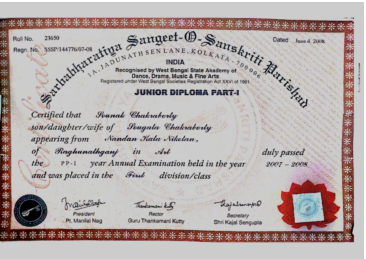 Roll No. 23650
Dated June 4, 2008
Regn. No. SSP/144776/07-08
Sarbabharatiya Sangeet-O-Sanskriti Parishad
INDIA
Recognised by West Bengal State Akademy of
Dance, Drama, Music & Fine Arts
Registered under West Bengal Societies Registration Act XXVI of 1961
JUNIOR DIPLOMA PART-I
Certified that Sounak Chakraborty
son/daughter/wife of Chakraborty
appearing from Nandan Kala Niketan,
of Raghunathganj in Art duly passed
the PP-1 year Annual Examination held in the year 2007 - 2008
and was placed in the First division/class
President
Pt. Manilal Nag
Rector
Guru Thankamani Kutty
Secretary
Shri Kajal Sengupta